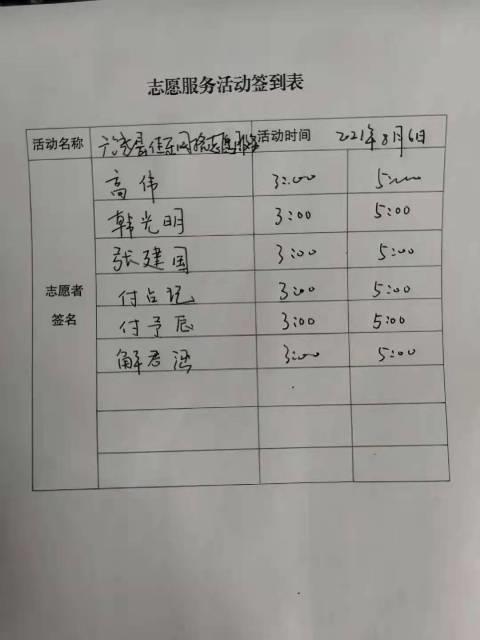 志愿服务活动签到表
活动名称 佳东网格志愿服务 活动时间 2021年8月6日
高伟 3:00 5:00
韩光明 3:00 5:00
张建国 3:00 5:00
志愿者
付占 3:00 5:00
签名
付予辰 3:00 5:00
解君涵 3:00 5:00